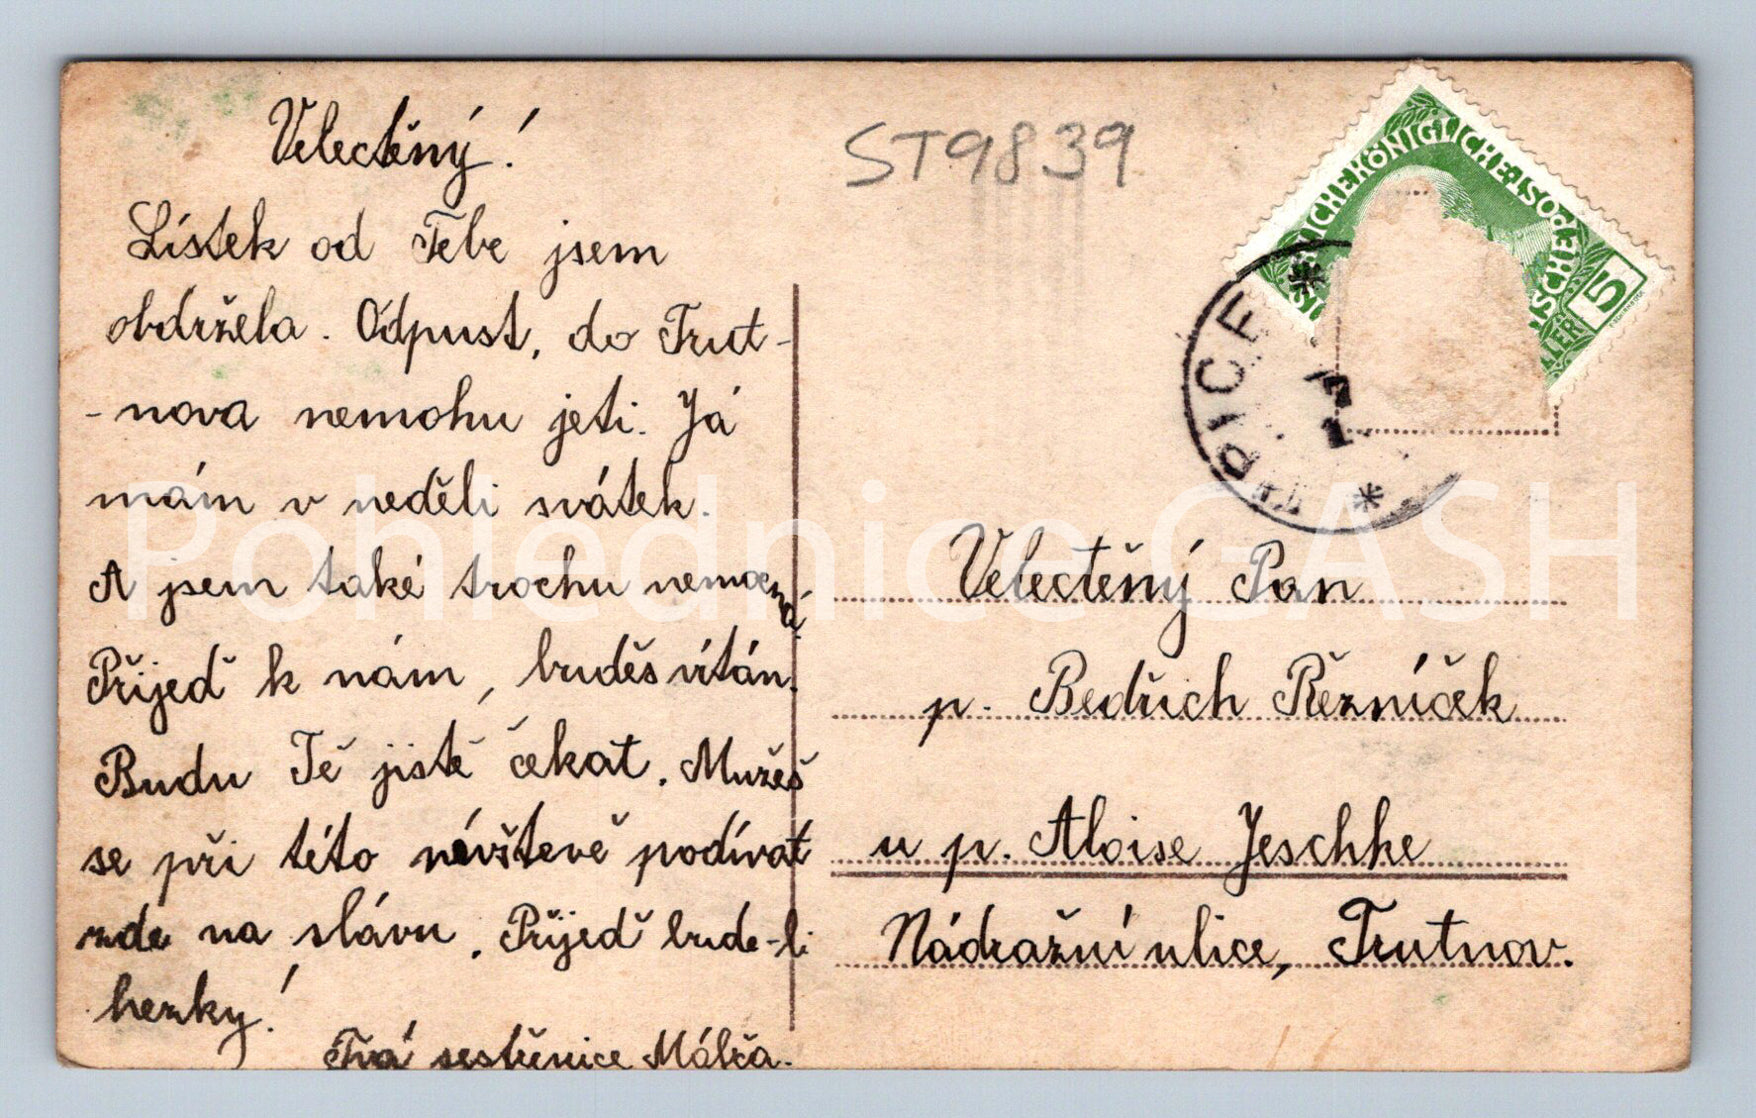 Velectěný!
Lístek od Tebe jsem
obdržela. Odpust, do Trut-
-nova nemohu jeti. Já
mám v neděli svátek.
A jsem také trochu nemocná.
Přijeď k nám, buděs vítán.
Budu Tě jistě čekat. Mužeš
se při této návštevě podívat
zde na slávu. Přijeď bude-li
hezky!
Tvá sestřenice Málča.
ST9839
KÖNIGLICHE POST
5
Velectěný Pan
p. Bedřich Řezníček
u p. Aloise Jeschke
Nádražní ulice, Trutnov.
Pohlednice GASH